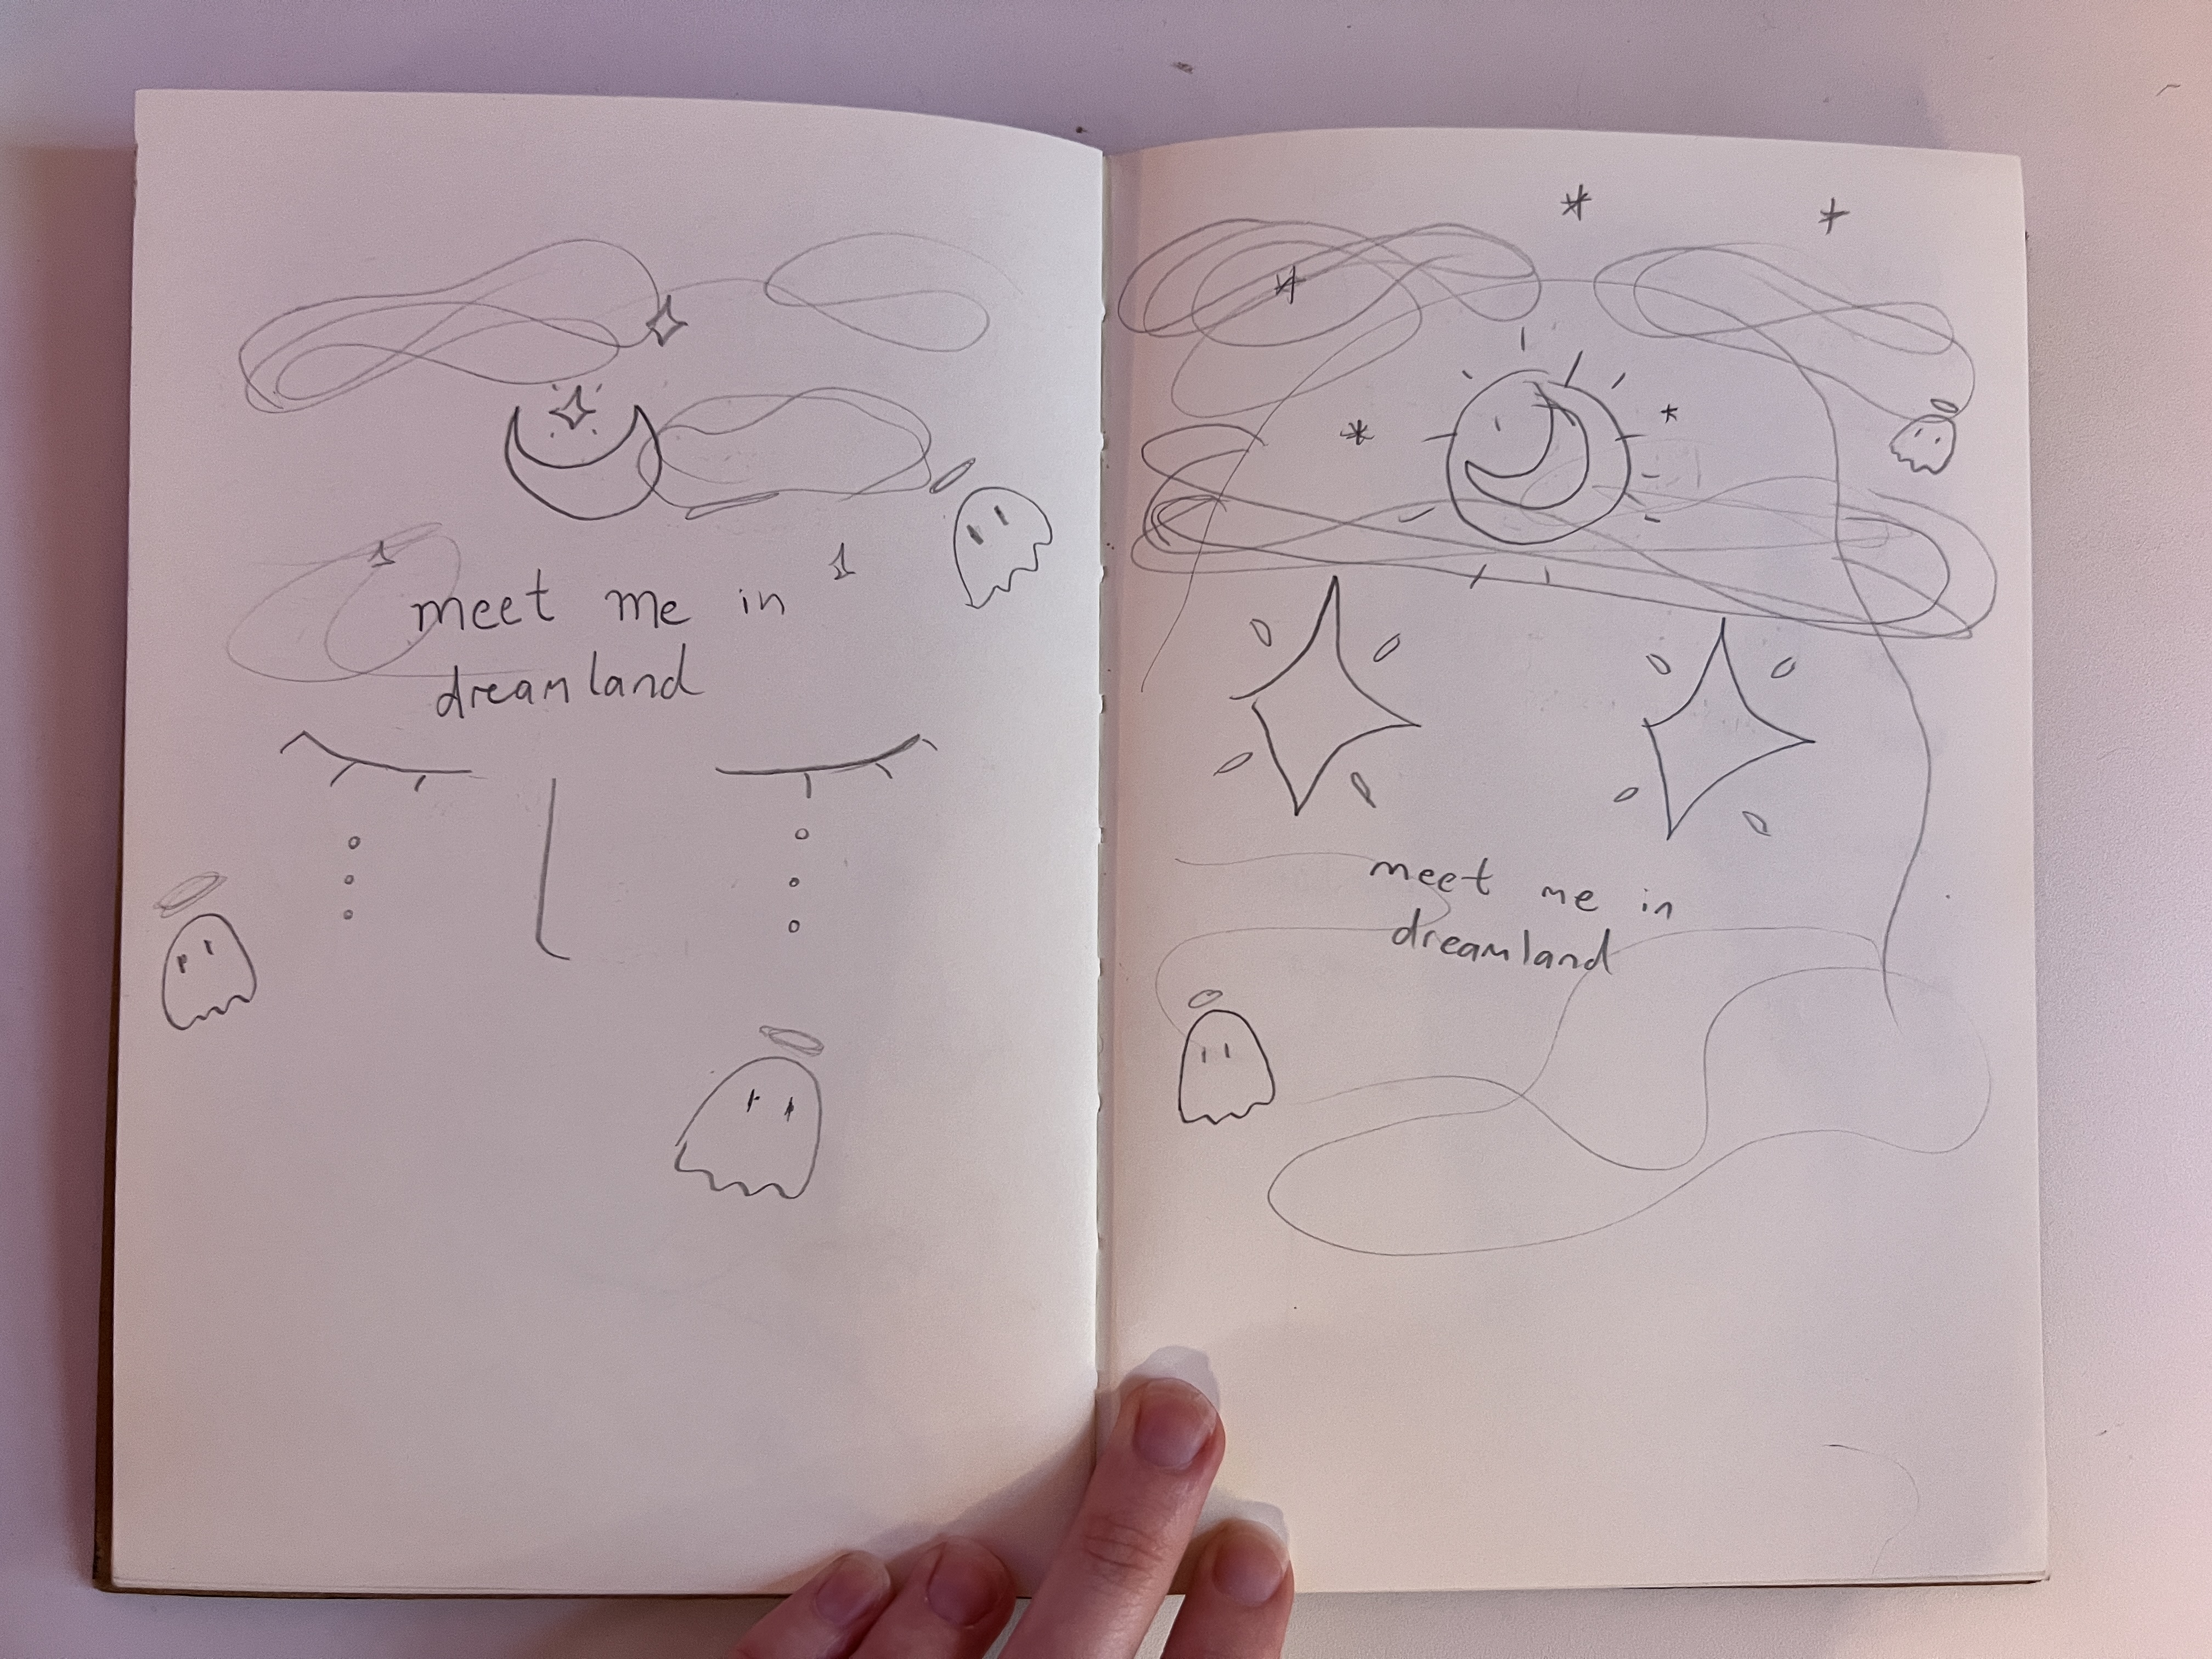 meet me in
dreamland
meet me in
dreamland